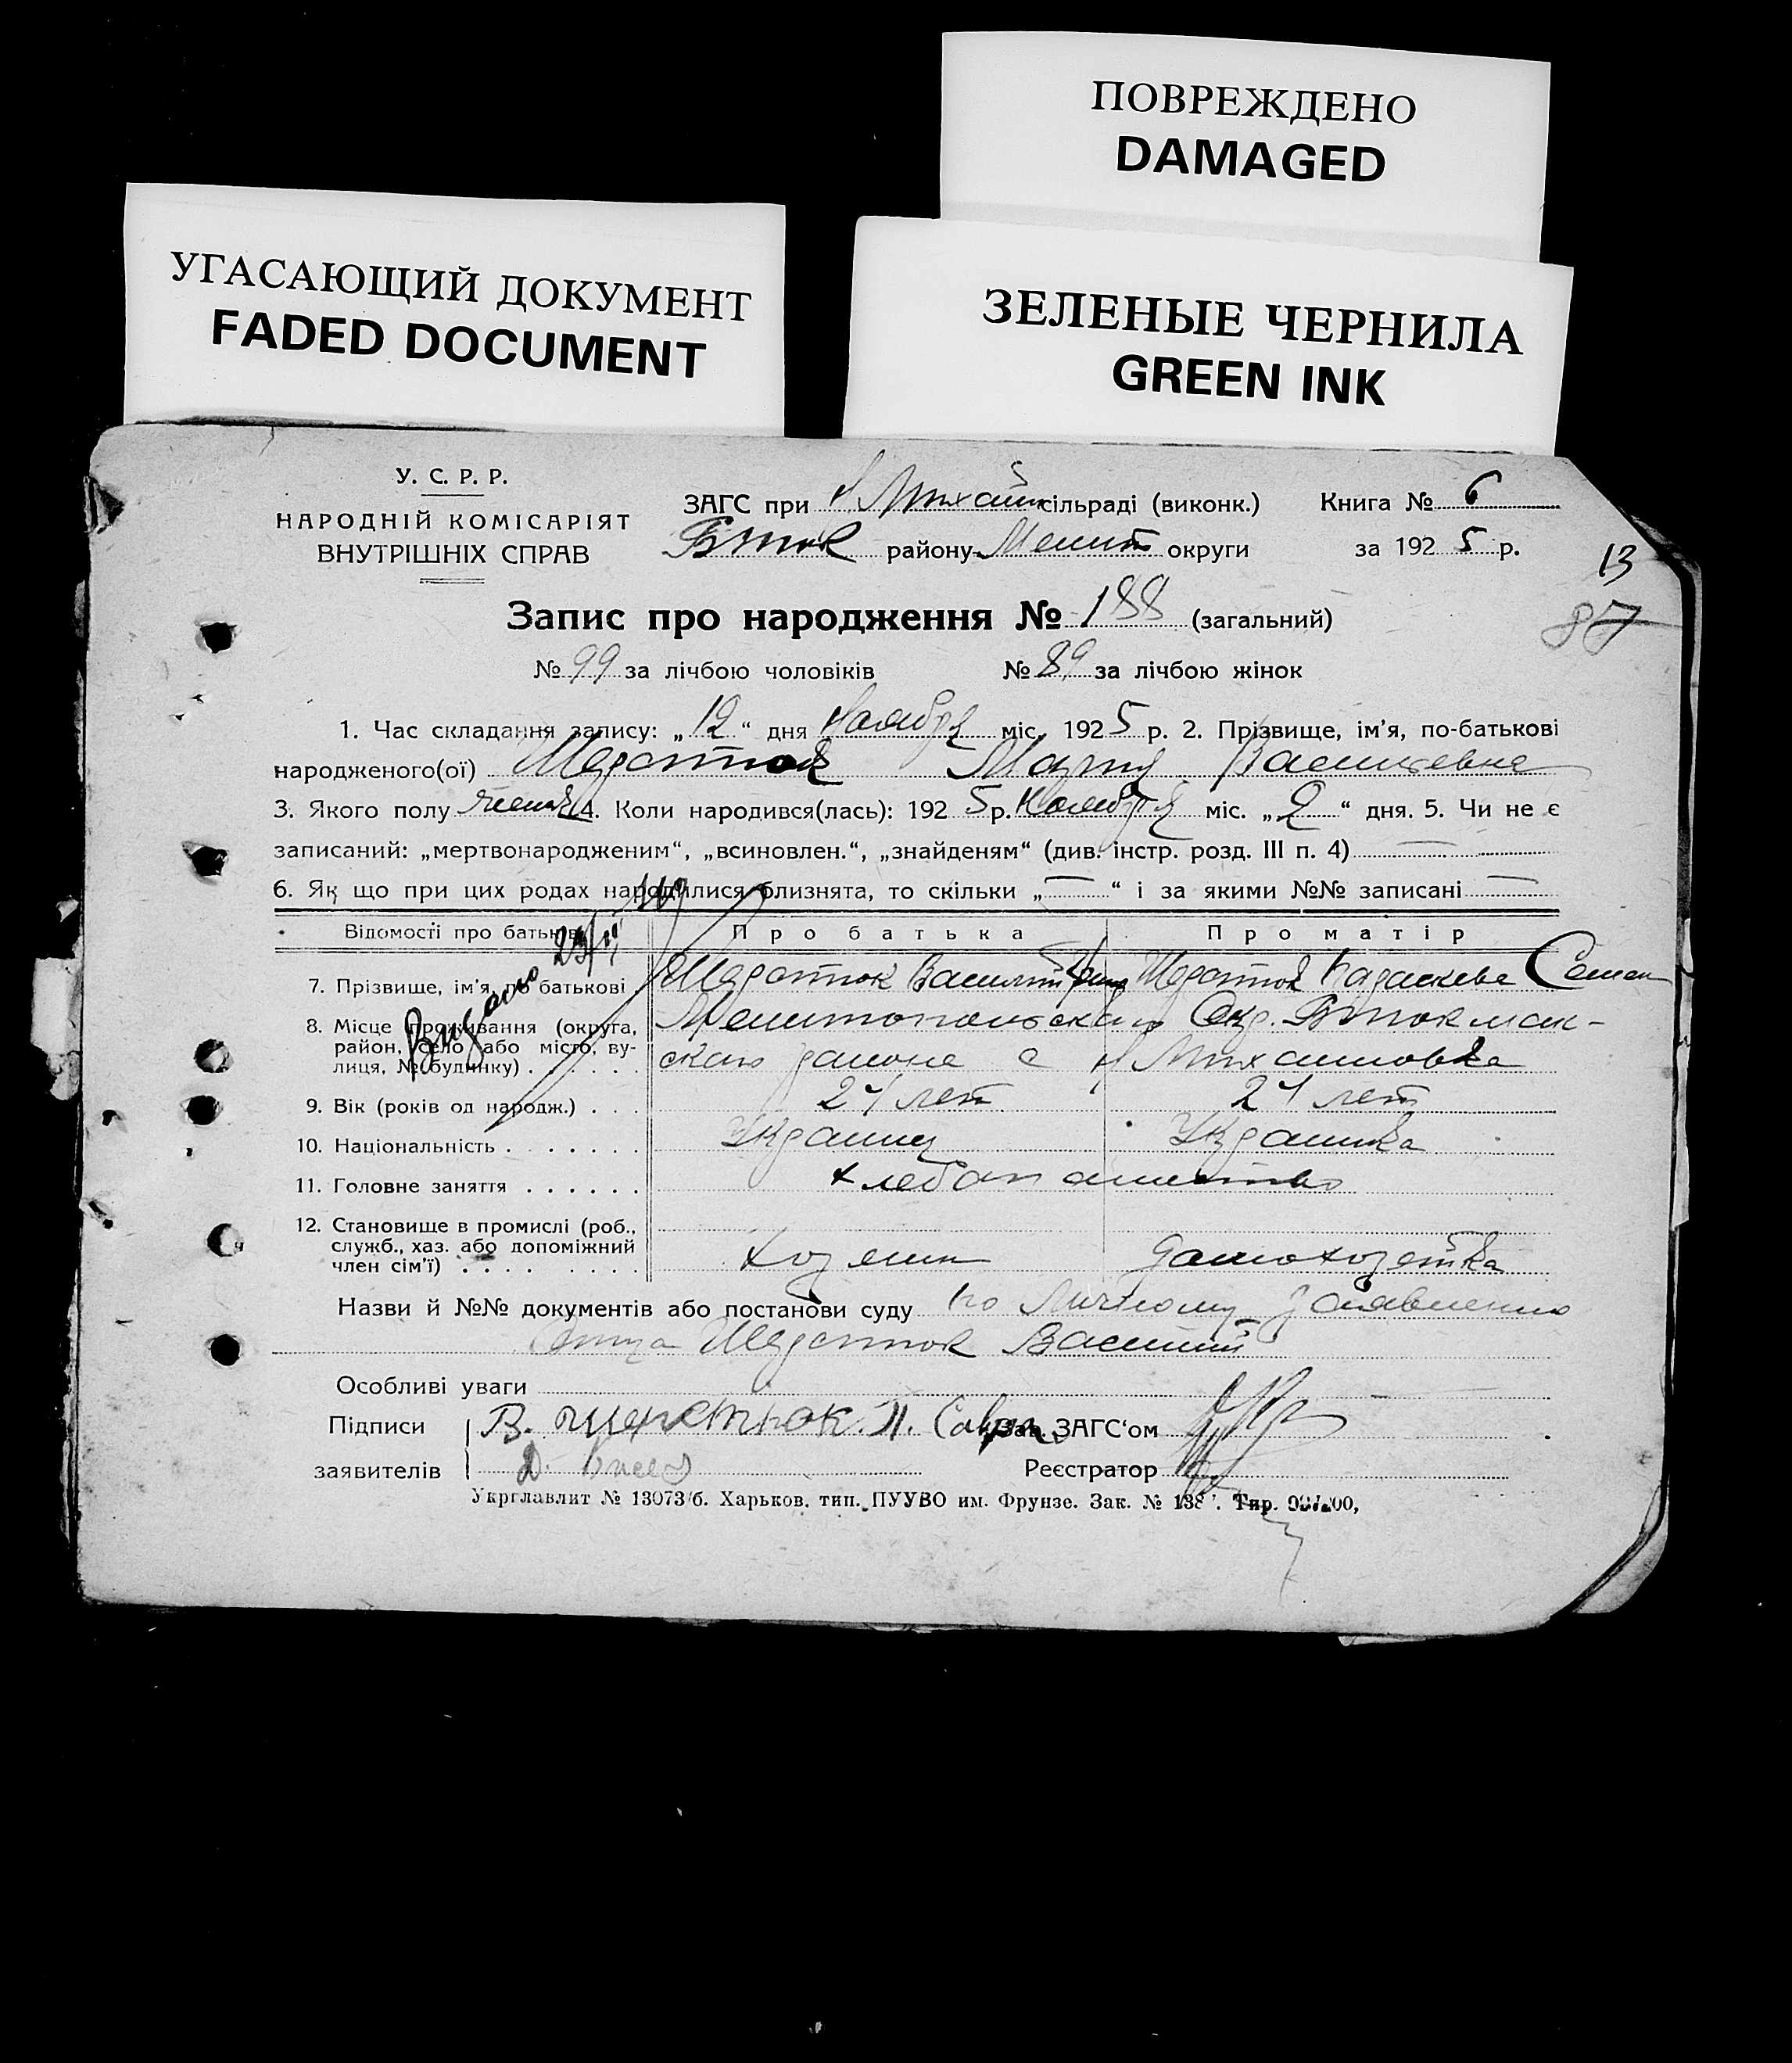 ПОВРЕЖДЕНО
DAMAGED
УГАСАЮЩИЙ ДОКУМЕНТ
FADED DOCUMENT
ЗЕЛЕНЫЕ ЧЕРНИЛА
GREEN INK
У. С. Р. Р.
НАРОДНІЙ КОМІСАРІЯТ
ВНУТРІШНІХ СПРАВ
ЗАГС при Н Михайл сільраді (виконк.) Книга № 6
Вток району Мелит округи за 192 5 р.
13
87
Запис про народження № 188 (загальний)
№ 99 за лічбою чоловіків № 89 за лічбою жінок
1. Час складання запису: „12“ дня Ноября міс. 1925 р. 2. Прізвище, ім'я, по-батькові
народженого(ої) Мария Васильевна
3. Якого полу женск 4. Коли народився(лась): 192 5 р. Ноября міс. „2“ дня. 5. Чи не є
записаний: „мертвонародженим“, „всиновлен.“, „знайденям“ (див. інстр. розд. III п. 4) —
6. Як що при цих родах народилися близнята, то скільки „—“ і за якими №№ записані —
Відомості про батьків Про батька Про матір
Видано
7. Прізвище, ім'я, по батькові Шерстюк Василий Шерстюк Параскева Семен
8. Місце проживання (округа, район, село або місто, вулиця, № будинку) Мелитопольскаго Окр. Втокмак-
скаго района с Н Михайловка
9. Вік (років од народж.) 24 лет 24 лет
10. Національність Украинец Украинка
11. Головне заняття хлебопашество
12. Становище в промислі (роб., служб., хаз. або допоміжний член сім'ї) хозяин домохозяйка
Назви й №№ документів або постанови суду по Личному заявлению
отца Шерстюк Василий
Особливі уваги —
Підписи В. Шерстюк. П. Зав. ЗАГС'ом
заявителів Д. Реєстратор
Укрглавлит № 13073/б. Харьков, тип. ПУУВО им. Фрунзе. Зак. №